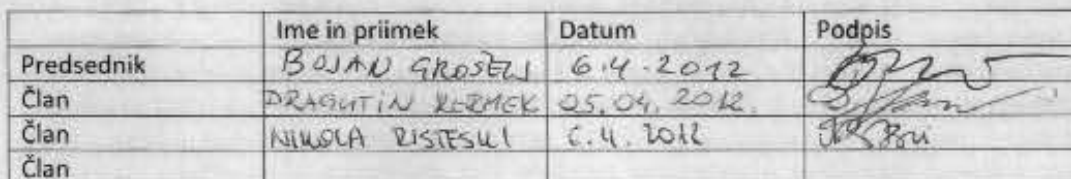 Ime in priimek Datum Podpis
Predsednik BOJAN GROŠELJ 6.4.2012
Član DRAGUTIN KERMEK 05.04.2012.
Član NIKOLA RISTESKI 6.4.2012
Član